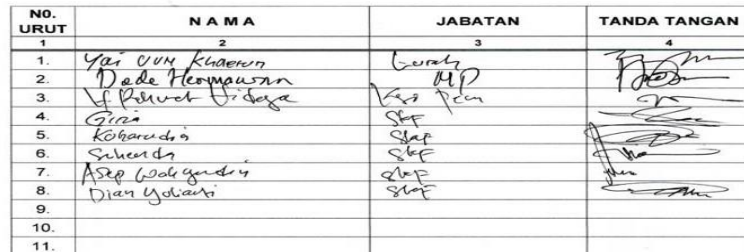 NO. URUT NAMA JABATAN TANDA TANGAN
1 2 3 4
1. Yai Lurah
2. Dede Hermawan MP
3. Kasi
4. Giri Staf
5. Koharudin Staf
6. Suhendi Staf
7. Asep Wahyudin Staf
8. Dian Yuliani Staf
9.
10.
11.